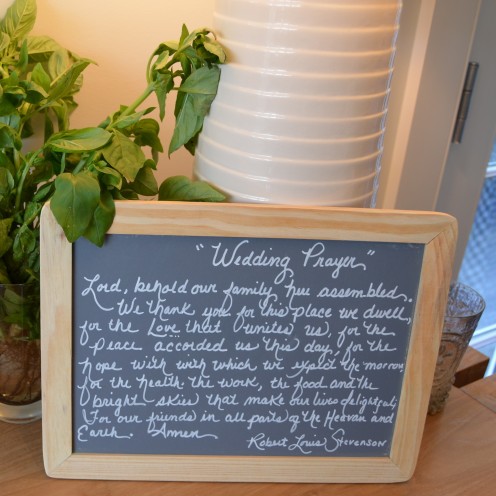 "Wedding Prayer"
Lord, behold our family here assembled.
We thank you for this place we dwell,
for the Love that unites us, for the
peace accorded us this day, for the
hope with with which we expect the morrow,
for the health the work, the food and the
bright skies that make our lives delightful;
For our friends in all parts of the Heavan and
Earth. Amen
Robert Louis Stevenson